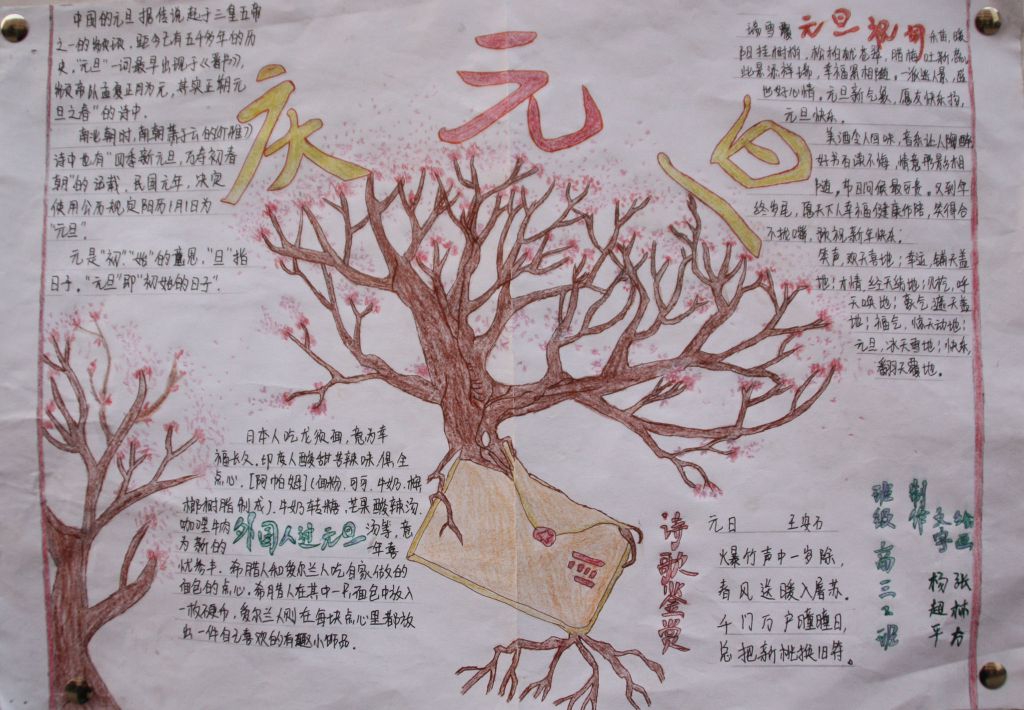 庆元旦
中国的元旦据传说起于三皇五帝
之一的颛顼，距今已有五千多年的历
史，"元旦"一词最早出现于《晋书》，
颛顼帝以孟春正月为元，其实正朔元
旦之春"的诗中。
南北朝时，南朝萧子云的《介雅》
诗中也有"四季新元旦，万寿初春
朝"的记载，民国元年，决定
使用公历规定阳历1月1日为
"元旦"。
元是"初""始"的意思，"旦"指
日子，"元旦"即"初始的日子"。
元旦祝词
瑞雪
阳挂树梢，松柏桃花翠，腊梅吐新蕊，
此景添祥瑞，幸福累相随，一派迷人景，盛
世好心情。元旦新气象，愿友快乐抱，
元旦快乐。
美酒令人回味，音乐让人陶醉
好书百读不悔，情意
随，节日问候最可贵，又到年
终岁尾，愿天下人幸福健康作陪，笑得合
不拢嘴，祝新年快乐；
笑声，欢天喜地；幸运，铺天盖
地；才情，经天纬地；火花，呼
天唤地；喜气，遮天盖
地；福气，惊天动地；
元旦，冰天雪地；快乐，
翻天覆地。
日本人吃龙须面，意为幸
福长久。印度人酸甜苦辣味俱全
点心，[阿帕姆](面粉，可可，牛奶，梅
榔树脂制成)，牛奶转糖，芒果酸辣汤，
咖喱牛肉
汤等，意
为新的
一年喜
外国人过元旦
忧参半。希腊人和爱尔兰人吃自家做的
面包的点心，希腊人在其中一片面包中放入
一枚硬币，爱尔兰人则在每块点心里都放
出一件自己喜欢的有趣小饰品。
诗歌鉴赏
元日 王安石
爆竹声中一岁除，
春风送暖入屠苏。
千门万户曈曈日，
总把新桃换旧符。
班级 高三2班
制作
文字 杨超平
绘画 张林方